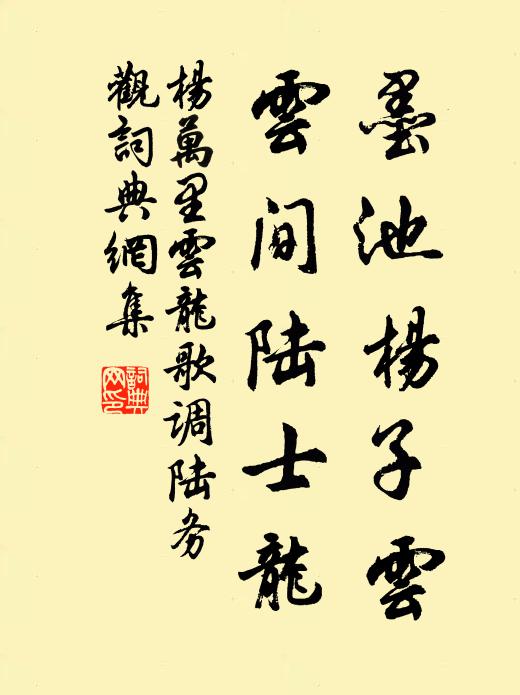 墨池楊子雲
雲間陆士龍
楊萬里雲龍歌调陆务
觀詞典網集
詞典网印